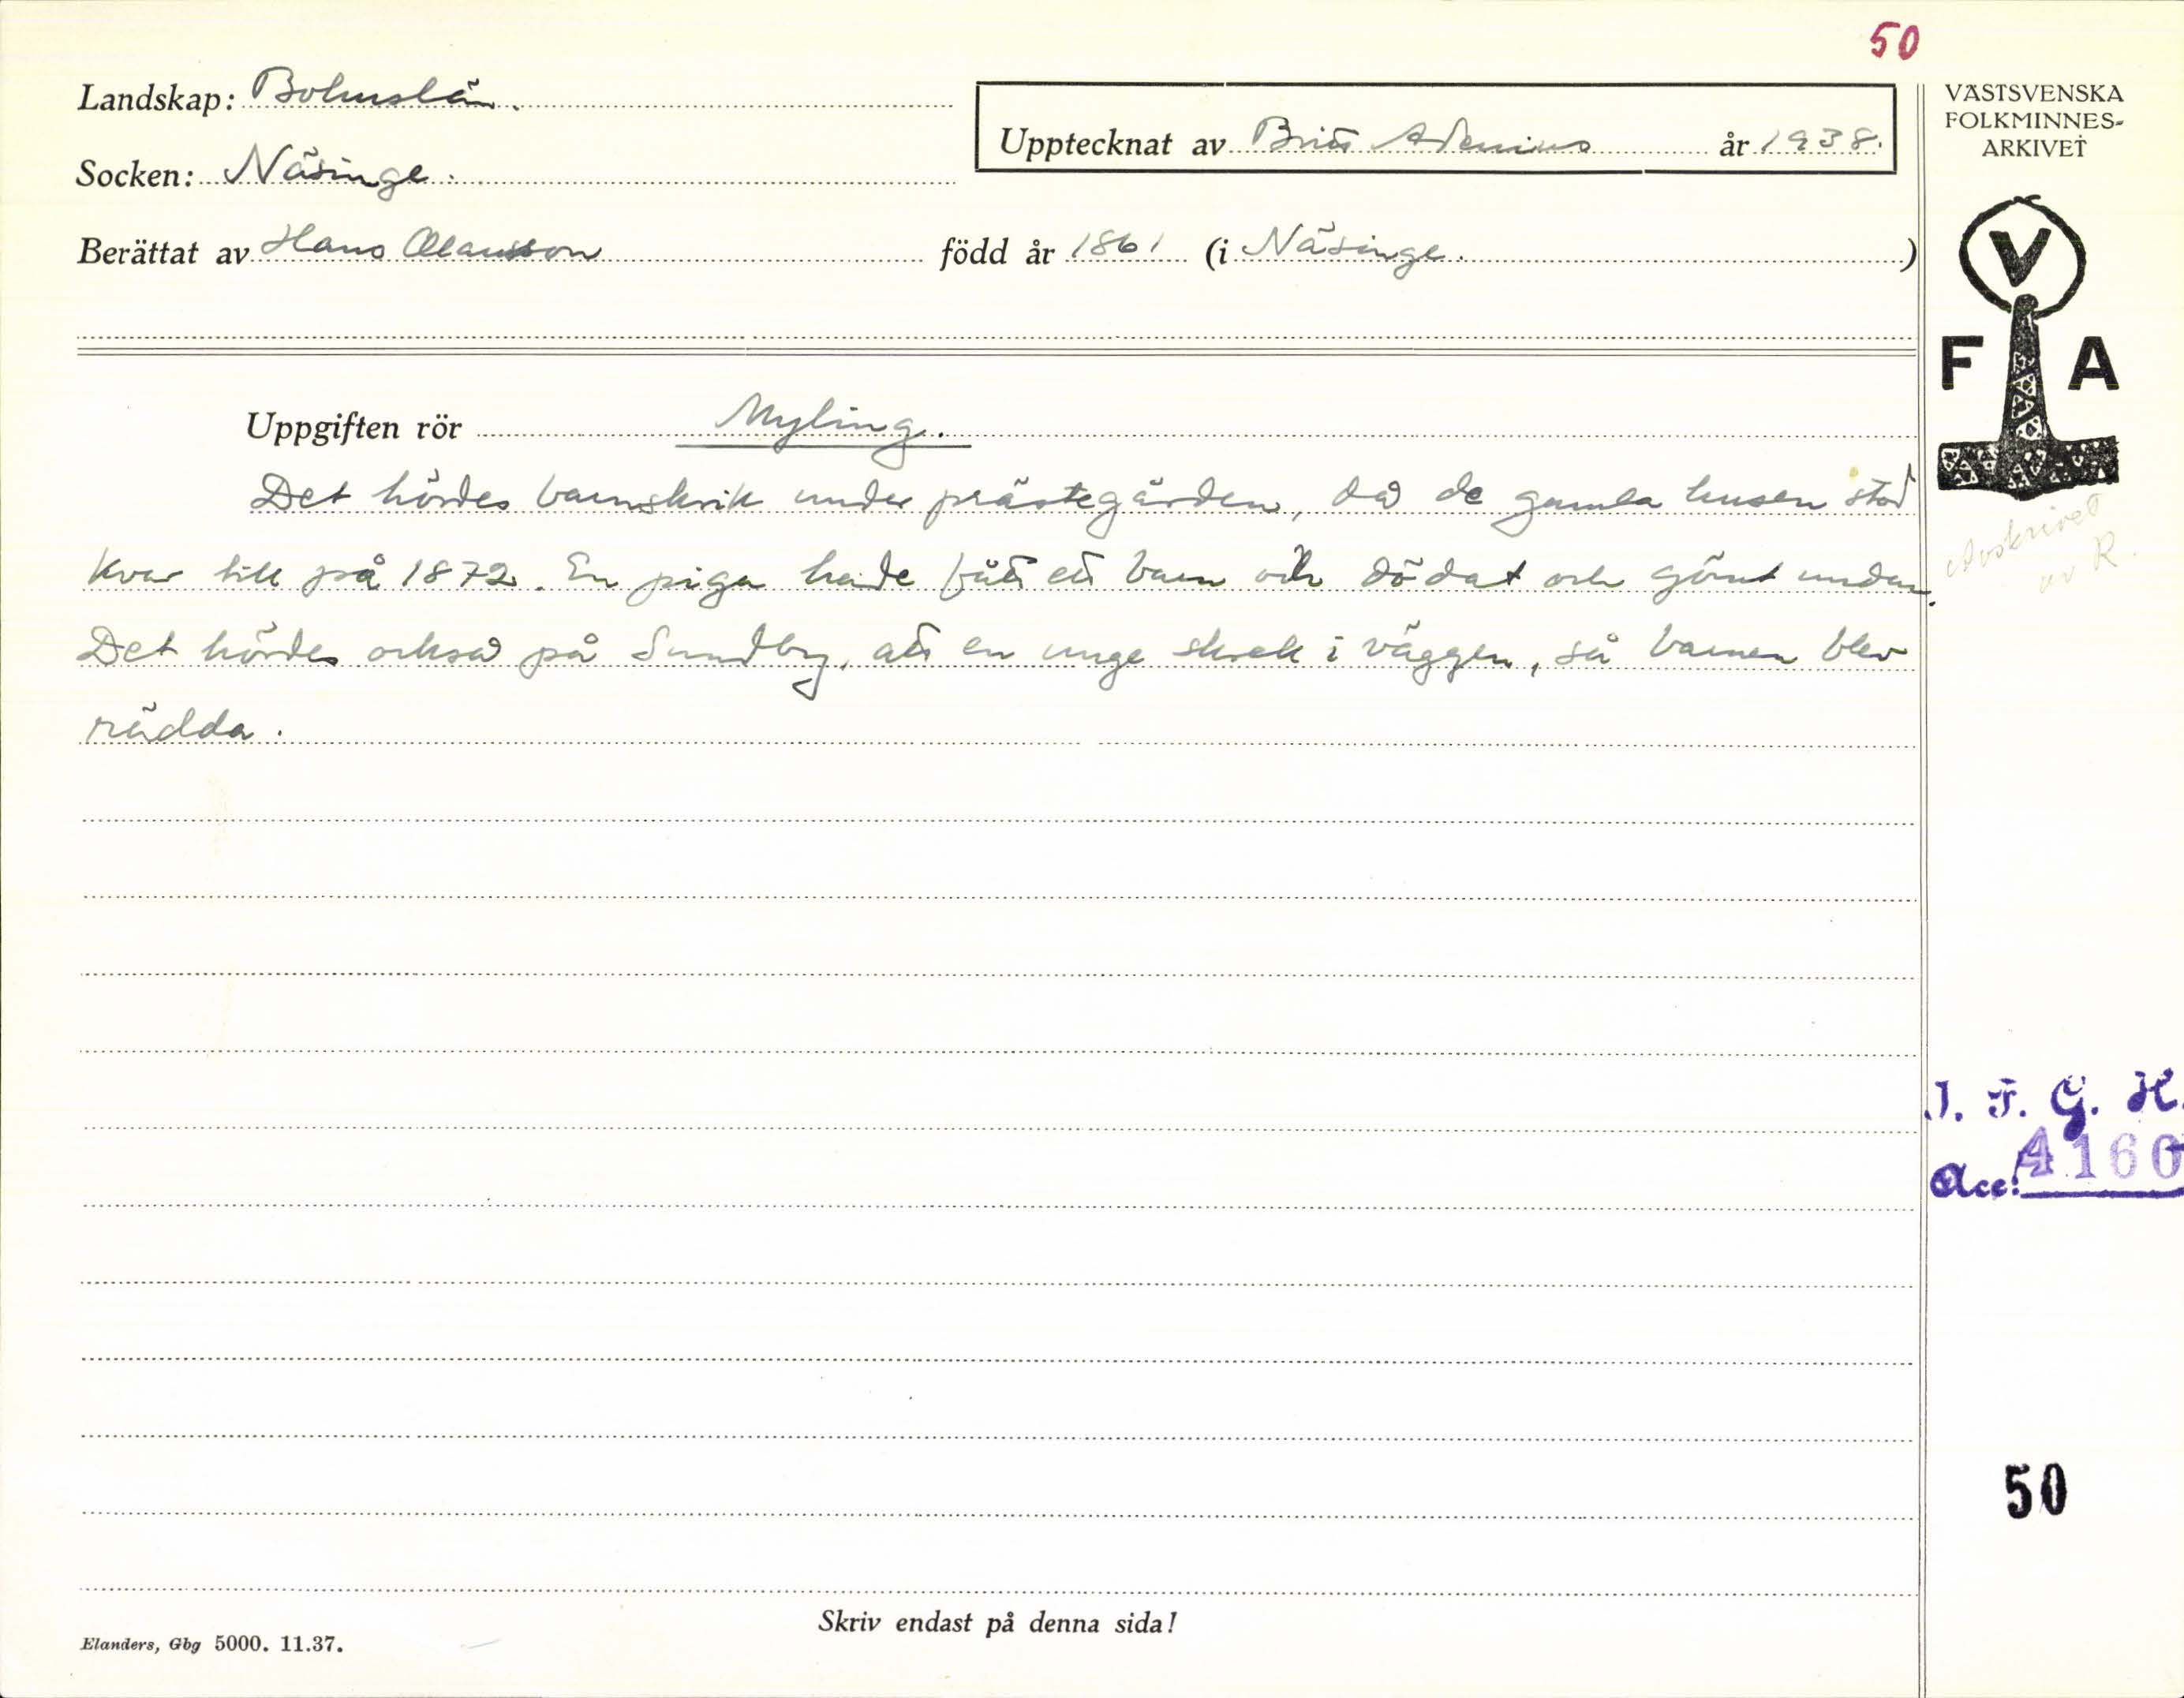 50
Landskap: Bohuslän.
Upptecknat av Britt Adenius år 1938.
Socken: Näsinge.
Berättat av Hans Olausson född år 1861 (i Näsinge.)
VÄSTSVENSKA
FOLKMINNES-
ARKIVET
V
F A
Uppgiften rör Myling.
Det hördes barnskrik under prästegården, då de gamla husen stod
kvar till på 1872. En piga hade fått ett barn och dödat och gömt undan.
Det hördes också på Sundby, att en unge skrek i väggen, så barnen blev
rädda.
Avskrivet
av R.
I. F. G. H.
Acc: 4160
50
Skriv endast på denna sida!
Elanders, Gbg 5000. 11.37.